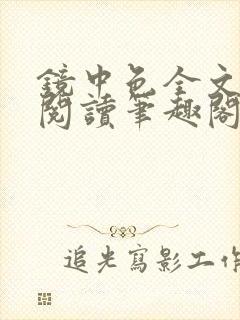 鏡中色全文
閱讀筆趣閣
追光寫影工作